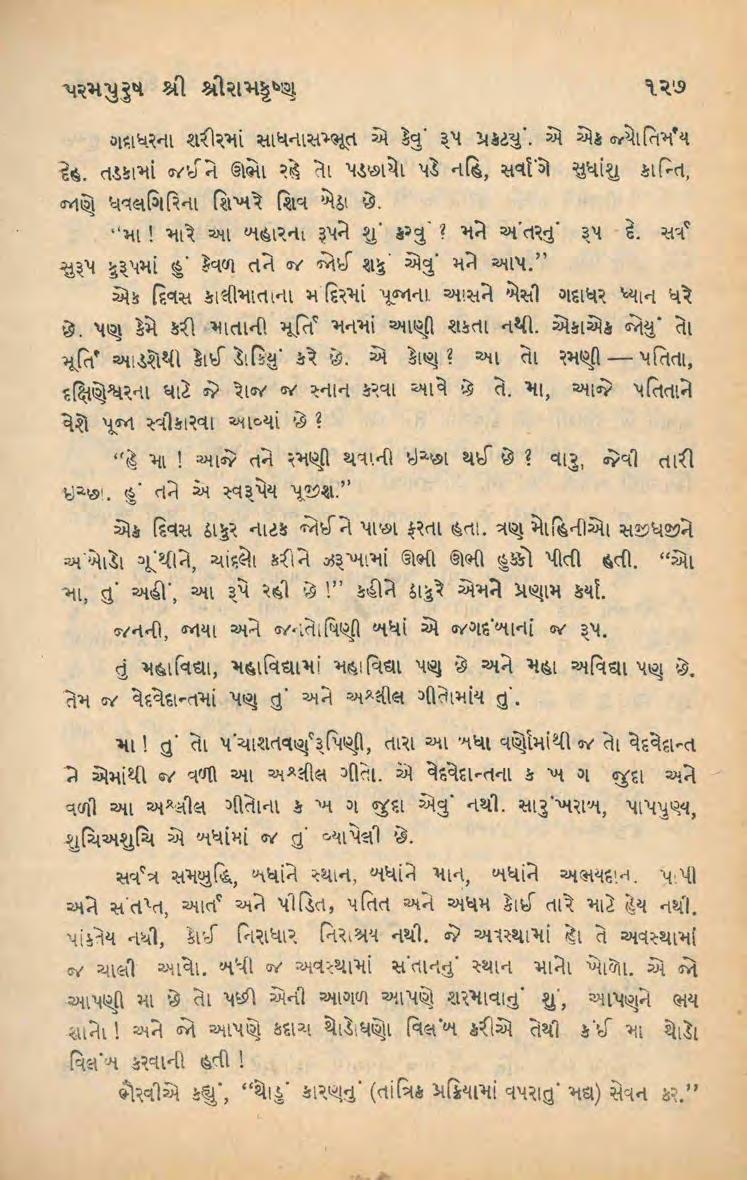 પરમપુરુષ શ્રી શ્રીરામકૃષ્ણ ૧૨૭
ગદાધરના શરીરમાં સાધનાસમ્ભૂત એ કેવું રૂપ પ્રકટયું. એ એક જ્યોતિર્મય
દેહ. તડકામાં જઈને ઊભો રહે તો પડછાયો પડે નહિ, સર્વાંગે સુધાંશુ કાન્તિ,
જાણે ધવલગિરિના શિખરે શિવ બેઠા છે.
“મા ! મારે આ બહારના રૂપને શું કરવું ? મને અંતરનું રૂપ દે. સર્વ
સુરૂપ કુરૂપમાં હું કેવળ તને જ જોઈ શકું એવું મને આપ.”
એક દિવસ કાલીમાતાના મંદિરમાં પૂજાના આસને બેસી ગદાધર ધ્યાન ધરે
છે. પણ કેમે કરી માતાની મૂર્તિ મનમાં આણી શકતા નથી. એકાએક જોયું તો
મૂર્તિ આડશેથી કોઈ ડોકિયું કરે છે. એ કોણ ? આ તો રમણી — પતિતા,
દક્ષિણેશ્વરના ઘાટે જે રોજ જ સ્નાન કરવા આવે છે તે. મા, આજે પતિતાને
વેશે પૂજા સ્વીકારવા આવ્યાં છે ?
“હે મા ! આજે તને રમણી થવાની ઇચ્છા થઈ છે ? વારુ, જેવી તારી
ઇચ્છા. હું તને એ સ્વરૂપેય પૂજીશ.”
એક દિવસ ઠાકુર નાટક જોઈને પાછા ફરતા હતા. ત્રણ મોહિનીઓ સજીધજીને
અંબોડો ગૂંથીને, ચાંદલો કરીને ઝરૂખામાં ઊભી ઊભી હુક્કો પીતી હતી. “ઓ
મા, તું અહીં, આ રૂપે રહી છે !” કહીને ઠાકુરે એમને પ્રણામ કર્યા.
જનની, જાયા અને જનતોષિણી બધાં એ જગદંબાનાં જ રૂપ.
તું મહાવિદ્યા, મહાવિદ્યામાં મહાવિદ્યા પણ છે અને મહા અવિદ્યા પણ છે.
તેમ જ વેદવેદાન્તમાં પણ તું અને અશ્લીલ ગીતોમાંય તું.
મા ! તું તો પંચાશતવર્ણરૂપિણી, તારા આ બધા વર્ણોમાંથી જ તો વેદવેદાન્ત
ને એમાંથી જ વળી આ અશ્લીલ ગીતો. એ વેદવેદાન્તના ક ખ ગ જુદા અને
વળી આ અશ્લીલ ગીતોના ક ખ ગ જુદા એવું નથી. સારુંખરાબ, પાપપુણ્ય,
શુચિઅશુચિ એ બધાંમાં જ તું વ્યાપેલી છે.
સર્વત્ર સમબુદ્ધિ, બધાંને સ્થાન, બધાંને માન, બધાંને અભયદાન. પાપી
અને સંતપ્ત, આર્ત અને પીડિત, પતિત અને અધમ કોઈ તારે માટે હેય નથી.
પાંક્તેય નથી, કોઈ નિરાધાર નિરાશ્રય નથી. જે અવસ્થામાં હો તે અવસ્થામાં
જ ચાલી આવો. બધી જ અવસ્થામાં સંતાનનું સ્થાન માનો ખોળો. એ જો
આપણી મા છે તો પછી એની આગળ આપણે શરમાવાનું શું, આપણને ભય
શાનો ! અને જો આપણે કદાચ થોડોઘણો વિલંબ કરીએ તેથી કંઈ મા થોડો
વિલંબ કરવાની હતી !
ભૈરવીએ કહ્યું, “થોડું કારણનું (તાંત્રિક પ્રક્રિયામાં વપરાતું મદ્ય) સેવન કર.”